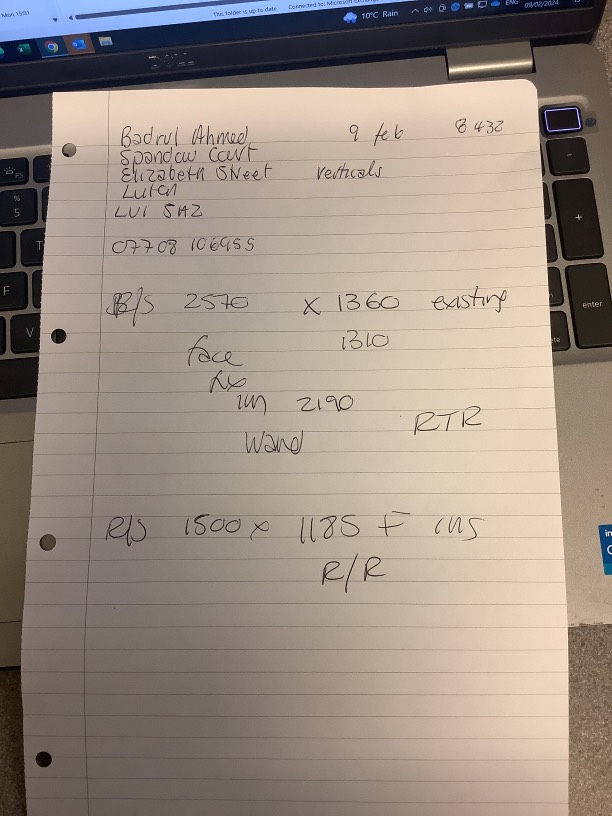 Mon 15:01
This folder is up to date. Connected to: Microsoft Exchange
10°C Rain
ENG
09/02/2024
DELL
Badrul Ahmed 9 feb 8432
Spandow Cavt
Elizabeth Street verticals
Luton
LU1 5HZ
07708 106955
B/S 2570 x 1360 existing
1310
face
fix
in 2190
RTR
Wand
R/S 1500 x 1185 F ins
R/R
F5
%
5
T
F
V
+
enter